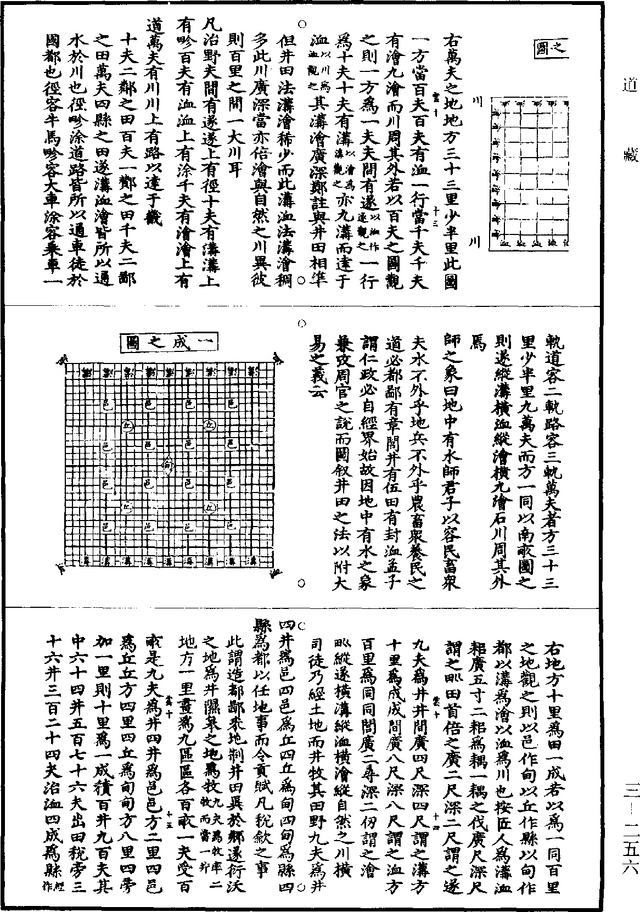 道藏
三—二五六
之圖
川
川
右萬夫之地地方三十三里少半里此國
一方當百夫百夫有洫一行當千夫千夫
有澮九澮而川周其外若以百夫之圖觀
之則一方爲一夫夫間有遂以洫作遂觀之一行
爲十夫十夫有溝以澮爲溝觀之亦九溝而達于
洫以川爲洫觀之其溝澮廣深鄭註與井田相準
但井田法溝澮稀少而此溝洫法溝澮稠
多此川廣深當亦倍澮與自然之川異彼
則百里之間一大川耳
凡治野夫間有遂遂上有徑十夫有溝溝上
有畛百夫有洫洫上有涂千夫有澮澮上有
道萬夫有川川上有路以達于畿
十夫二鄰之田百夫一酇之田千夫二鄙
之田萬夫四縣之田遂溝洫澮皆所以通
水於川也徑畛涂道路皆所以通車徒於
國都也徑容牛馬畛容大車涂容乘車一
軌道容二軌路容三軌萬夫者方三十三
里少半里九萬夫而方一同以南畝圖之
則遂縱溝橫洫縱澮橫九澮石川周其外
焉
師之象曰地中有水師君子以容民畜衆
夫水不外乎地兵不外乎農畜衆養民之
道必都鄙有章閭井有伍田有封洫孟子
謂仁政必自經界始故因地中有水之象
兼攷周官之說而圖叙井田之法以附大
易之義云
一成之圖
右地方十里爲田一成若以爲一同百里
之地觀之則以邑作甸以丘作縣以甸作
都以溝爲澮以洫爲川也按匠人爲溝洫
耜廣五寸二耜爲耦一耦之伐廣尺深尺
謂之𤰕田首倍之廣二尺深二尺謂之遂
九夫爲井井間廣四尺深四尺謂之溝方
十里爲成成間廣八尺深八尺謂之洫方
百里爲同同間廣二尋深二仞謂之澮
𤰕縱遂橫溝縱洫橫澮縱自然之川橫
司徒乃經土地而井牧其田野九夫爲井
四井爲邑四邑爲丘四丘爲甸四甸爲縣四
縣爲都以任地事而令貢賦凡稅歛之事
此謂造都鄙采地制井田異於鄉遂衍沃
之地爲井隰臯之地爲牧九夫爲牧率二牧而當一井
地方一里畫爲九區區各百畝一夫受百
畝是九夫爲井四井爲邑邑方二里四邑
爲丘丘方四里四丘爲甸甸方八里四旁
加一里則十里爲一成積百井九百夫其
中六十四井五百七十六夫出田稅旁三
十六井三百二十四夫治洫四成爲縣